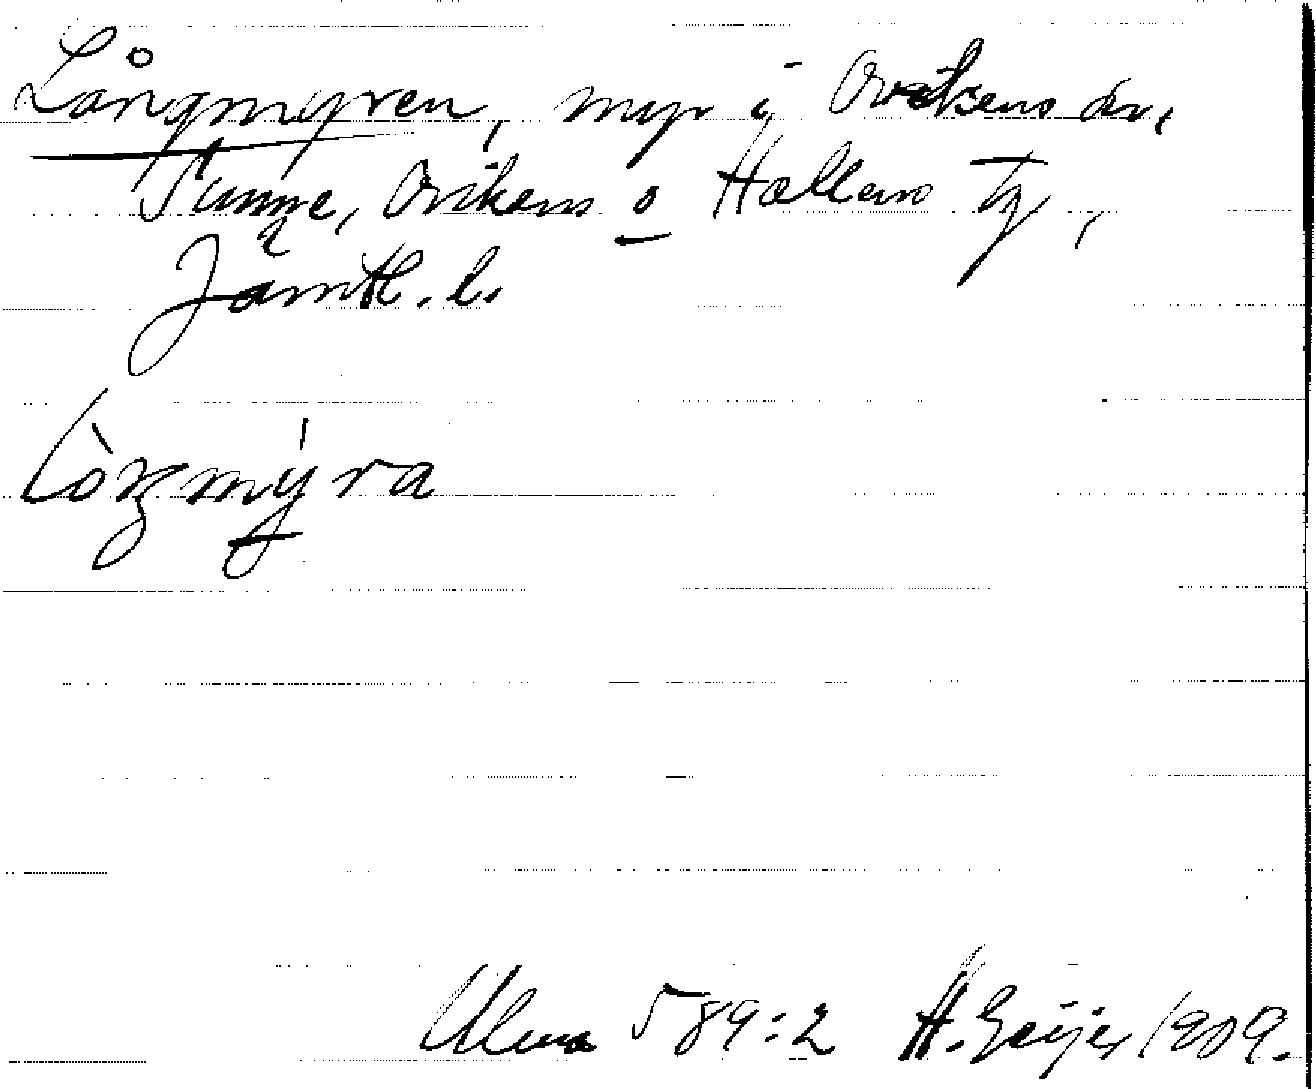 Långmyren, myr i Ovikens sn,
Sunne, Ovikens o Hallens tg,
Jämtl. l.
Lòŋmýra
Ulma 589:2 H. Geijer 1909.